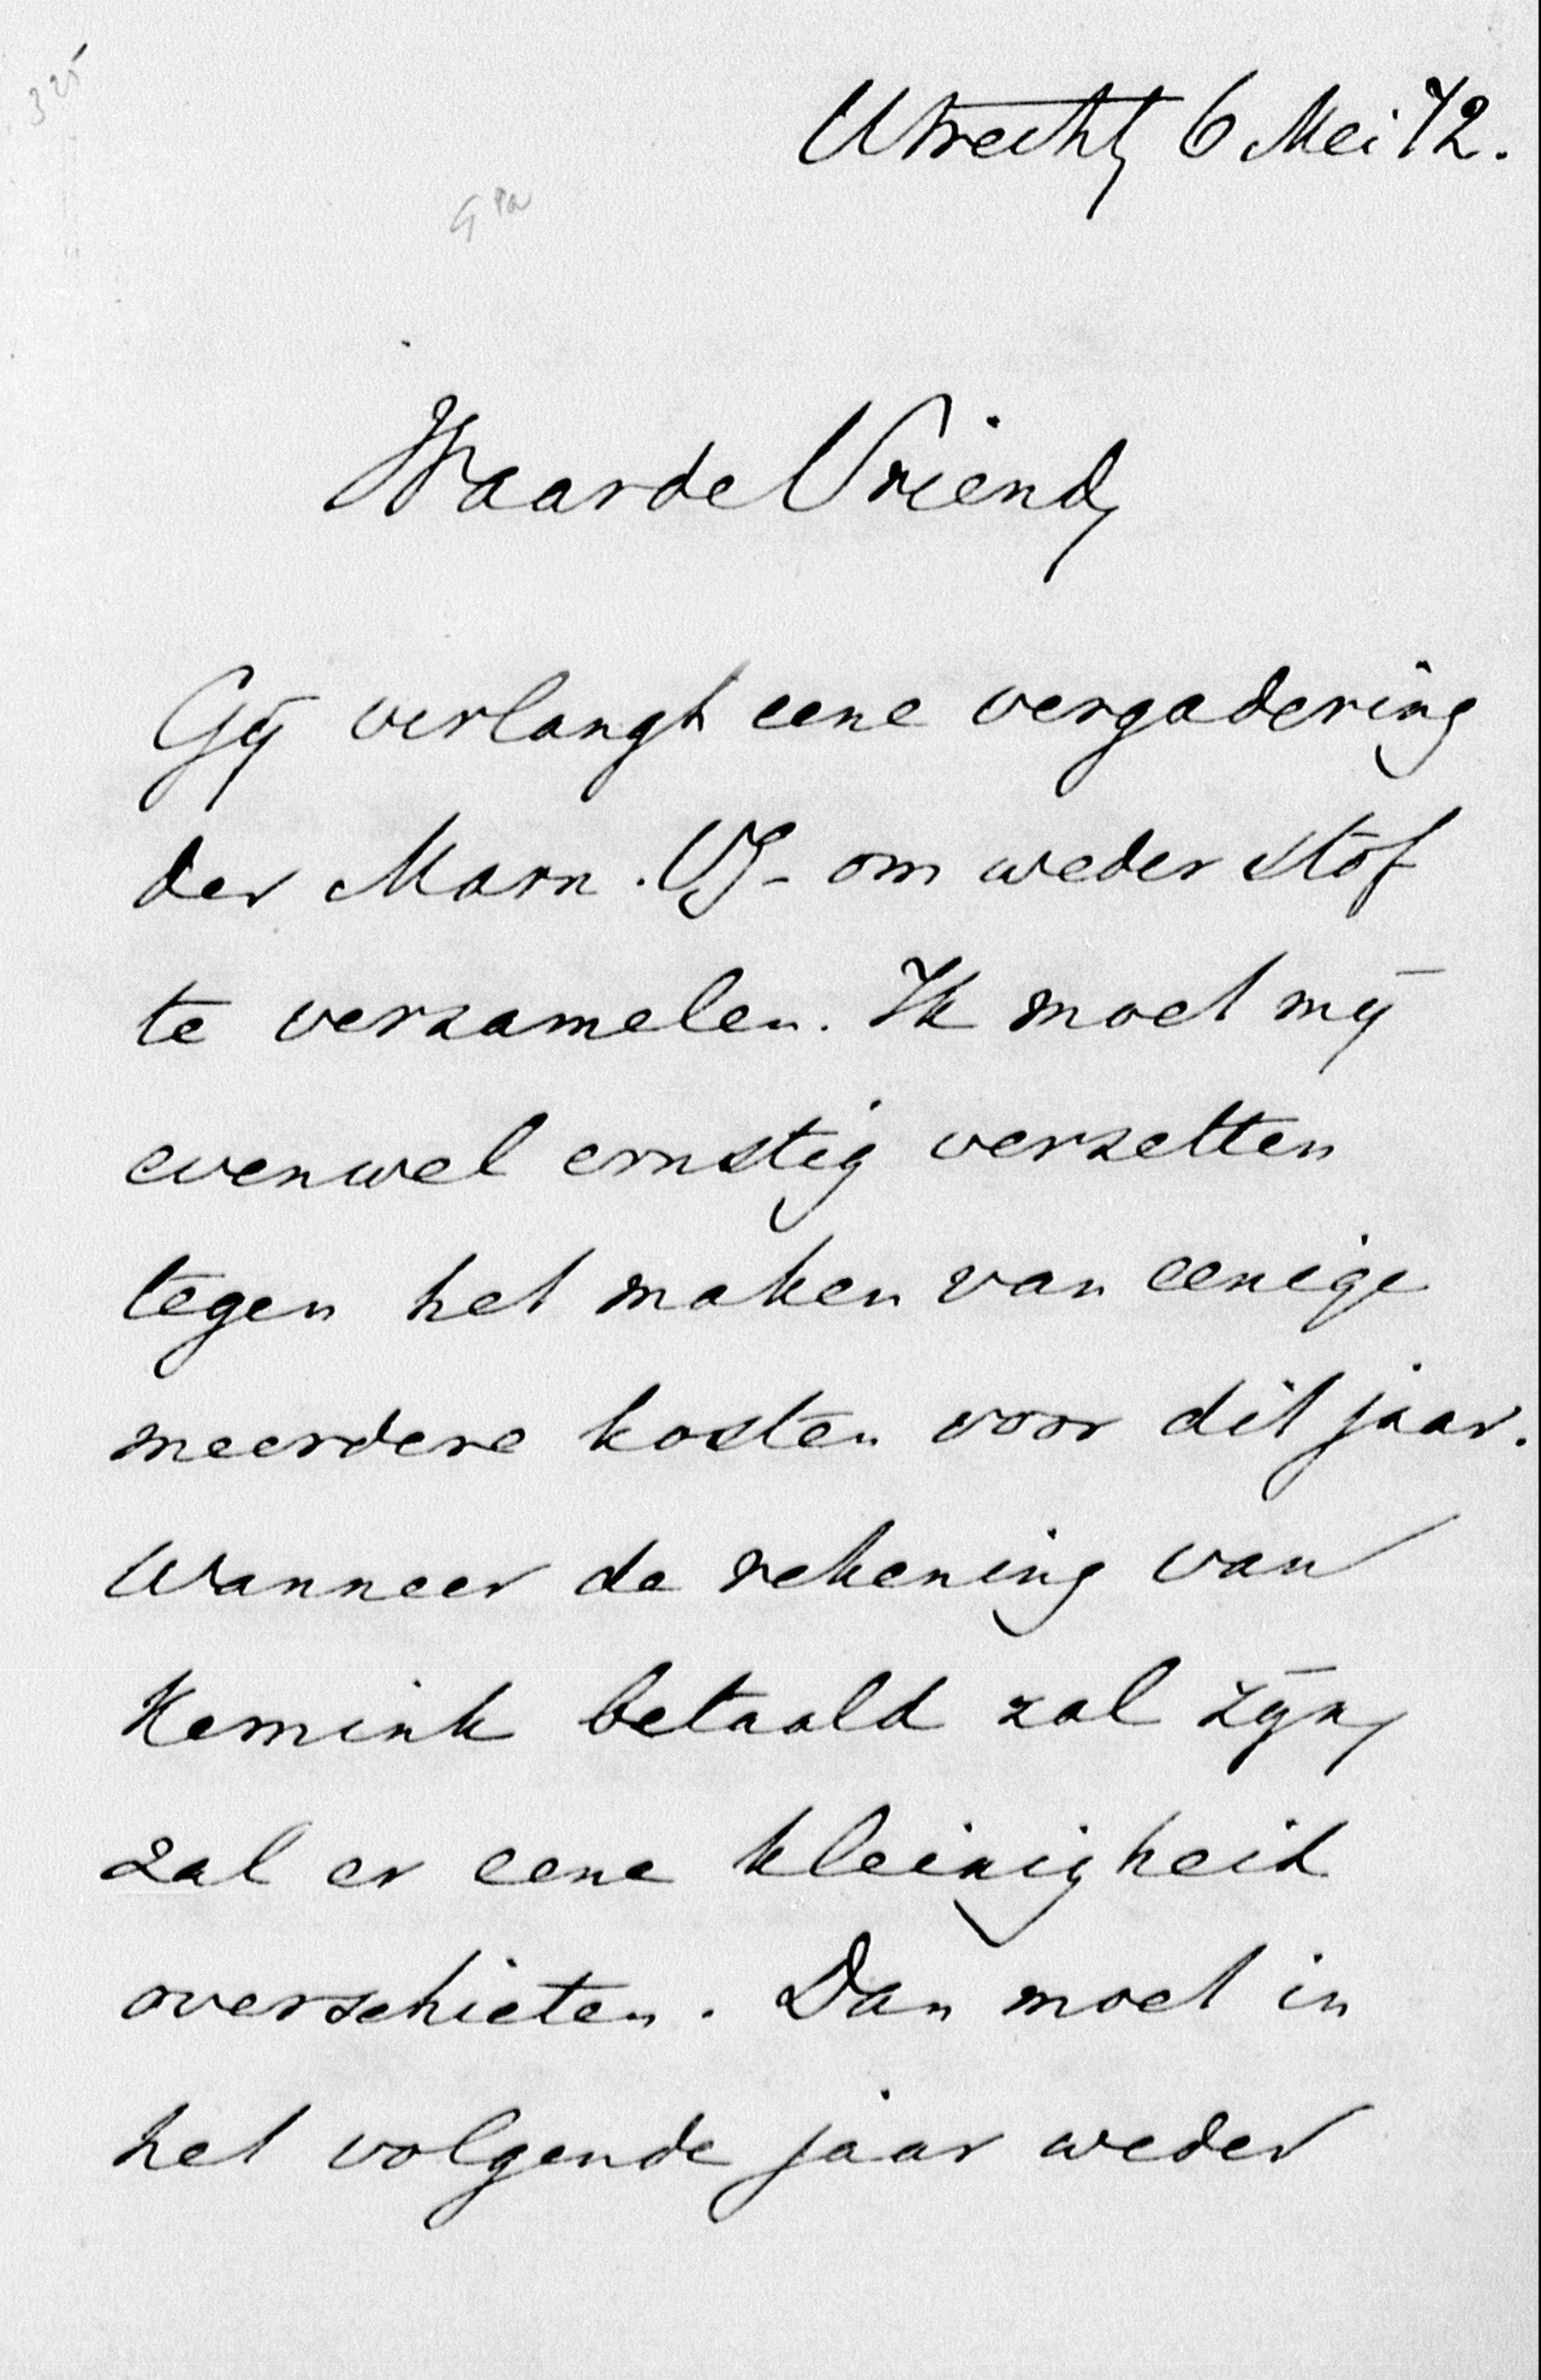 325
Utrecht, 6 Mei 72.
Waarde Vriend,
Gij verlangt eene vergadering
der Marn. VG - om weder stof
te verzamelen. Ik moet mij
evenwel ernstig verzetten
tegen het maken van eenige
meerdere kosten voor dit jaar.
Wanneer de rekening van
Kemink betaald zal zijn,
zal er eene kleinigheid
overschieten. Dan moet in
het volgende jaar weder